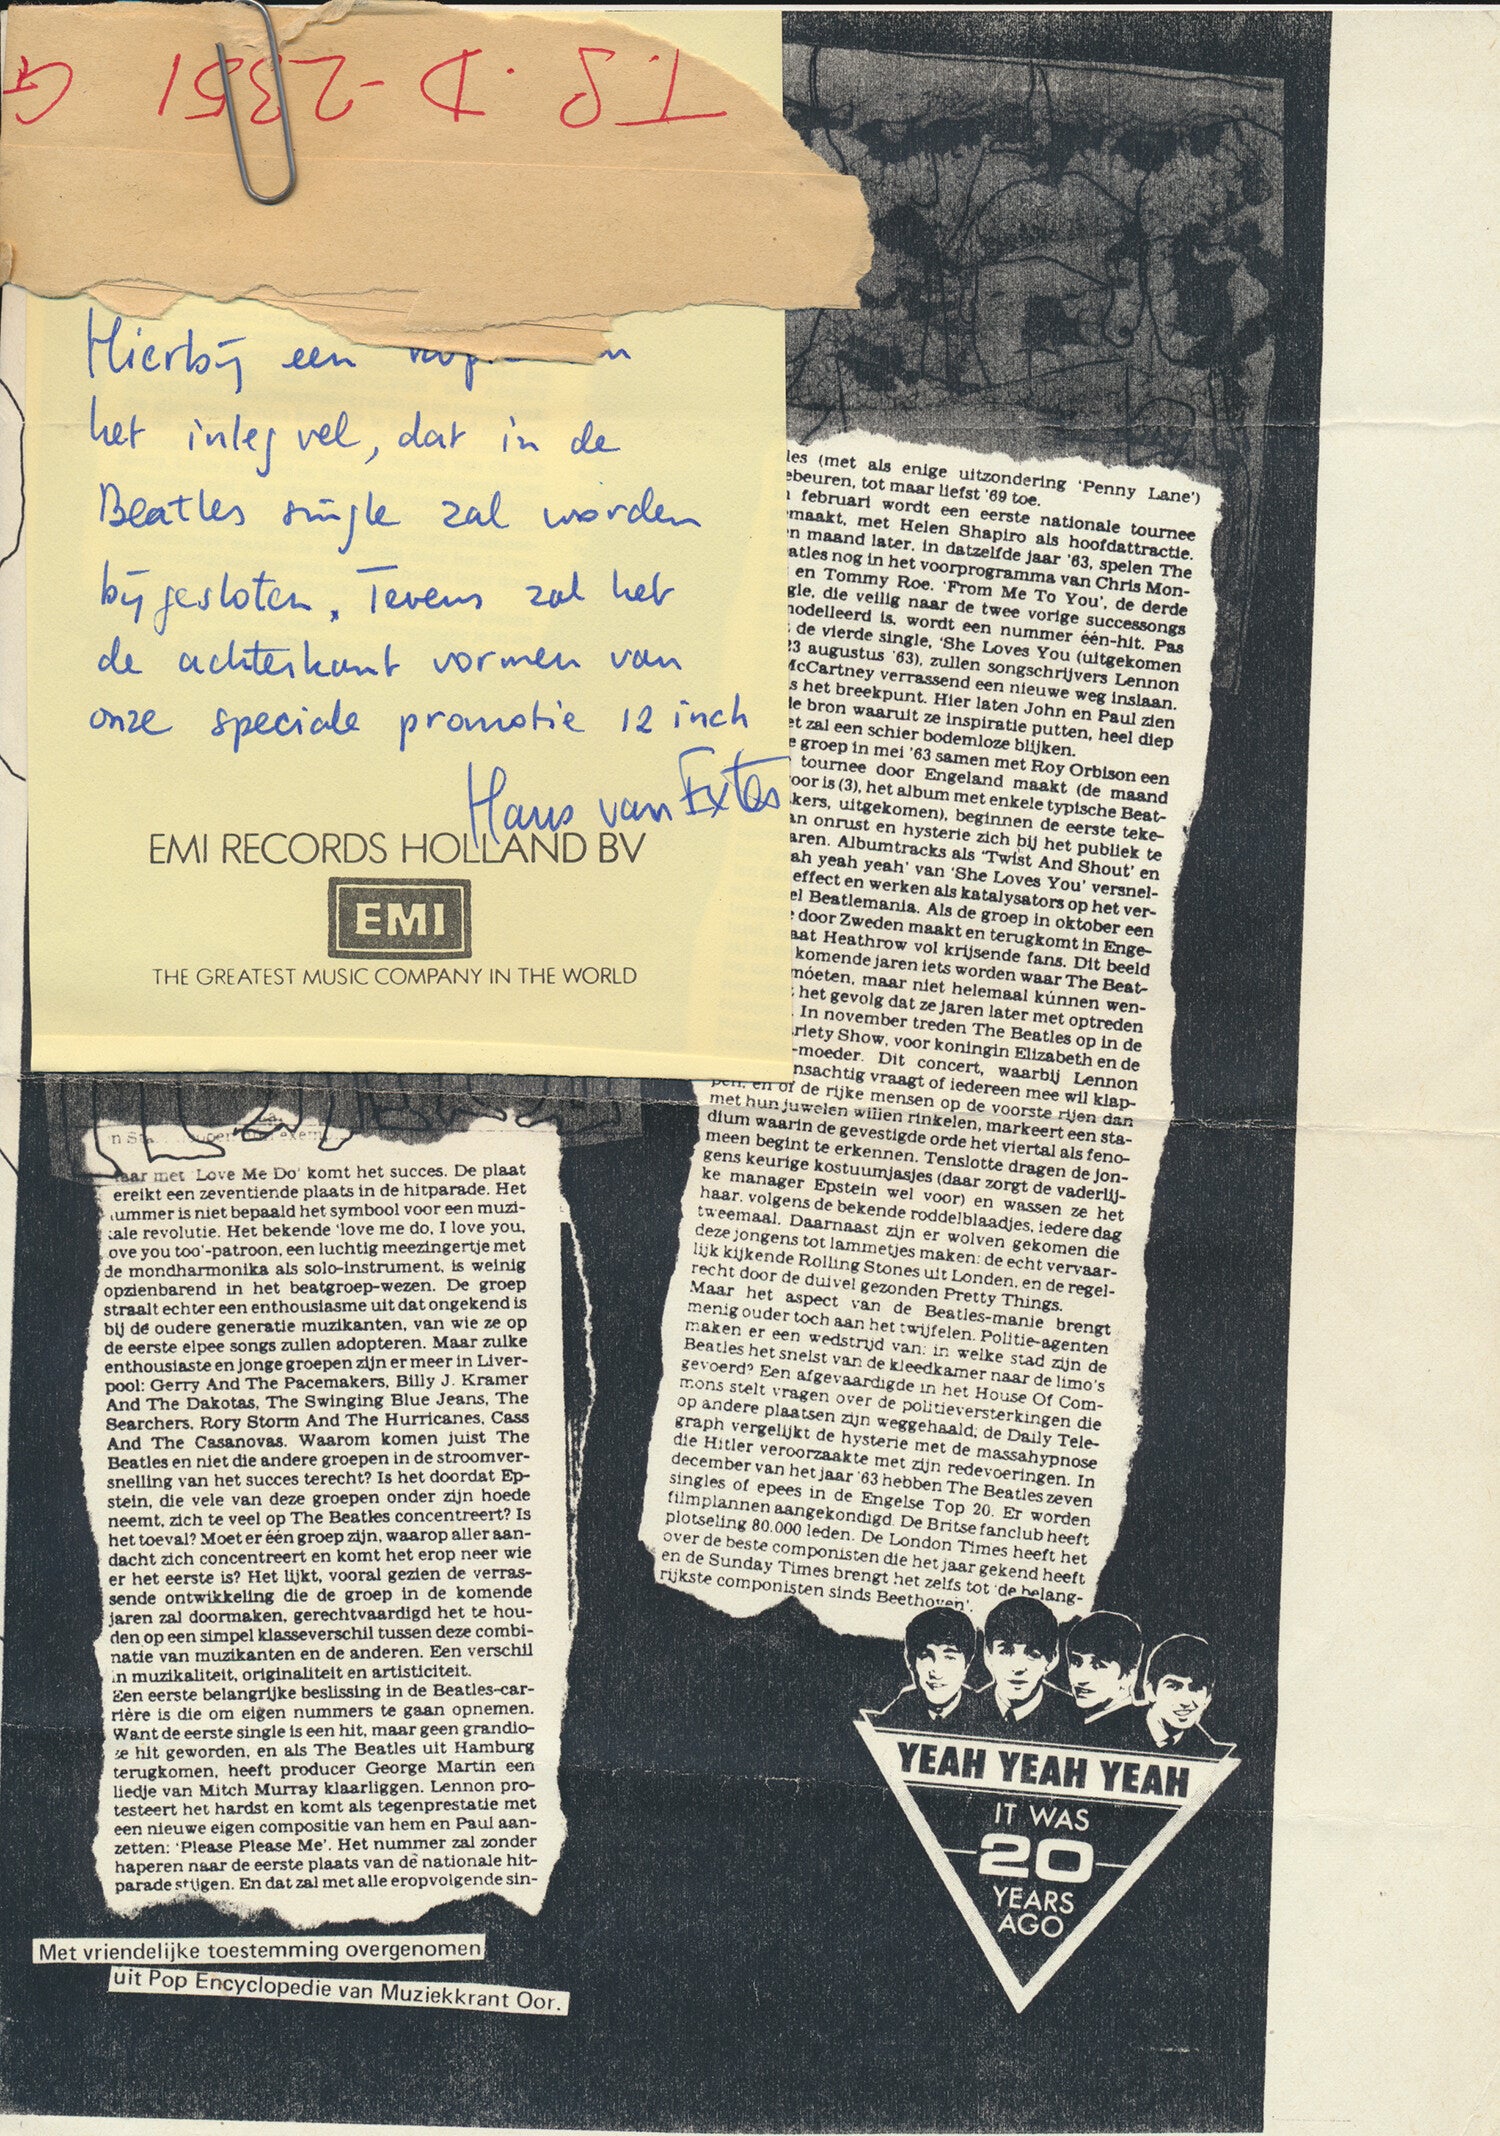 T.P. D-2351 G
Hierbij een
het inlegvel, dat in de
Beatles single zal worden
bijgesloten. Tevens zal het
de achterkant vormen van
onze speciale promotie 12 inch
Hans van
EMI RECORDS HOLLAND BV
EMI
THE GREATEST MUSIC COMPANY IN THE WORLD
met 'Love Me Do' komt het succes. De plaat
ereikt een zeventiende plaats in de hitparade. Het
ummer is niet bepaald het symbool voor een muzi-
ale revolutie. Het bekende 'love me do, I love you,
ove you too'-patroon, een luchtig meezingertje met
de mondharmonika als solo-instrument, is weinig
opzienbarend in het beatgroep-wezen. De groep
straalt echter een enthousiasme uit dat ongekend is
bij de oudere generatie muzikanten, van wie ze op
de eerste elpee songs zullen adopteren. Maar zulke
enthousiaste en jonge groepen zijn er meer in Liver-
pool: Gerry And The Pacemakers, Billy J. Kramer
And The Dakotas, The Swinging Blue Jeans, The
Searchers, Rory Storm And The Hurricanes, Cass
And The Casanovas. Waarom komen juist The
Beatles en niet die andere groepen in de stroomver-
snelling van het succes terecht? Is het doordat Ep-
stein, die vele van deze groepen onder zijn hoede
neemt, zich te veel op The Beatles concentreert? Is
het toeval? Moet er één groep zijn, waarop aller aan-
dacht zich concentreert en komt het erop neer wie
er het eerste is? Het lijkt, vooral gezien de verras-
sende ontwikkeling die de groep in de komende
jaren zal doormaken, gerechtvaardigd het te hou-
den op een simpel klasseverschil tussen deze combi-
natie van muzikanten en de anderen. Een verschil
in muzikaliteit, originaliteit en artisticiteit.
Een eerste belangrijke beslissing in de Beatles-car-
rière is die om eigen nummers te gaan opnemen.
Want de eerste single is een hit, maar geen grandio-
ze hit geworden, en als The Beatles uit Hamburg
terugkomen, heeft producer George Martin een
liedje van Mitch Murray klaarliggen. Lennon pro-
testeert het hardst en komt als tegenprestatie met
een nieuwe eigen compositie van hem en Paul aan-
zetten: 'Please Please Me'. Het nummer zal zonder
haperen naar de eerste plaats van de nationale hit-
parade stijgen. En dat zal met alle eropvolgende sin-
les (met als enige uitzondering 'Penny Lane')
ebeuren, tot maar liefst '69 toe.
februari wordt een eerste nationale tournee
emaakt, met Helen Shapiro als hoofdattractie.
en maand later, in datzelfde jaar '63, spelen The
eatles nog in het voorprogramma van Chris Mon-
en Tommy Roe. 'From Me To You', de derde
gle, die veilig naar de twee vorige successongs
modelleerd is, wordt een nummer één-hit. Pas
de vierde single, 'She Loves You (uitgekomen
23 augustus '63), zullen songschrijvers Lennon
McCartney verrassend een nieuwe weg inslaan.
s het breekpunt. Hier laten John en Paul zien
de bron waaruit ze inspiratie putten, heel diep
et zal een schier bodemloze blijken.
e groep in mei '63 samen met Roy Orbison een
tournee door Engeland maakt (de maand
voor is (3), het album met enkele typische Beat-
kers, uitgekomen), beginnen de eerste teke-
an onrust en hysterie zich bij het publiek te
aren. Albumtracks als 'Twist And Shout' en
ah yeah yeah' van 'She Loves You' versnel-
effect en werken als katalysators op het ver-
el Beatlemania. Als de groep in oktober een
door Zweden maakt en terugkomt in Enge-
aat Heathrow vol krijsende fans. Dit beeld
komende jaren iets worden waar The Beat-
móeten, maar niet helemaal kúnnen wen-
het gevolg dat ze jaren later met optreden
In november treden The Beatles op in de
riety Show, voor koningin Elizabeth en de
-moeder. Dit concert, waarbij Lennon
nsachtig vraagt of iedereen mee wil klap-
pen, en of de rijke mensen op de voorste rijen dan
met hun juwelen willen rinkelen, markeert een sta-
dium waarin de gevestigde orde het viertal als feno-
meen begint te erkennen. Tenslotte dragen de jon-
gens keurige kostuumjasjes (daar zorgt de vaderlij-
ke manager Epstein wel voor) en wassen ze het
haar, volgens de bekende roddelblaadjes, iedere dag
tweemaal. Daarnaast zijn er wolven gekomen die
deze jongens tot lammetjes maken: de echt vervaar-
lijk kijkende Rolling Stones uit Londen, en de regel-
recht door de duivel gezonden Pretty Things.
Maar het aspect van de Beatles-manie brengt
menig ouder toch aan het twijfelen. Politie-agenten
maken er een wedstrijd van: in welke stad zijn de
Beatles het snelst van de kleedkamer naar de limo's
gevoerd? Een afgevaardigde in het House Of Com-
mons stelt vragen over de politieversterkingen die
op andere plaatsen zijn weggehaald, de Daily Tele-
graph vergelijkt de hysterie met de massahypnose
die Hitler veroorzaakte met zijn redevoeringen. In
december van het jaar '63 hebben The Beatles zeven
singles of epees in de Engelse Top 20. Er worden
filmplannen aangekondigd. De Britse fanclub heeft
plotseling 80.000 leden. De London Times heeft het
over de beste componisten die het jaar gekend heeft
en de Sunday Times brengt het zelfs tot 'de belang-
rijkste componisten sinds Beethoven'.
YEAH YEAH YEAH
IT WAS
20
YEARS
AGO
Met vriendelijke toestemming overgenomen
uit Pop Encyclopedie van Muziekkrant Oor.